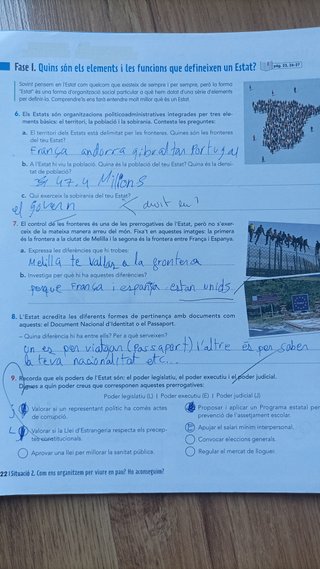 Fase 1. Quins són els elements i les funcions que defineixen un Estat? pàg. 23, 26-27
Sovint pensem en l'Estat com quelcom que existeix de sempre i per sempre, però la forma
"Estat" és una forma d'organització social particular a què hem dotat d'una sèrie d'elements
per definir-la. Comprendre'ls ens farà entendre molt millor què és un Estat.
6. Els Estats són organitzacions politicoadministratives integrades per tres ele-
ments bàsics: el territori, la població i la sobirania. Contesta les preguntes:
a. El territori dels Estats està delimitat per les fronteres. Quines són les fronteres
del teu Estat?
França andorra gibraltar Portugal
b. A l'Estat hi viu la població. Quina és la població del teu Estat? Quina és la densi-
tat de població?
47.4 Millons
c. Qui exerceix la sobirania del teu Estat?
el govern
7. El control de les fronteres és una de les prerogatives de l'Estat, però no s'exer-
ceix de la mateixa manera arreu del món. Fixa't en aquestes imatges: la primera
és la frontera a la ciutat de Melilla i la segona és la frontera entre França i Espanya.
a. Expressa les diferències que hi trobes:
Melilla te vallas a la frontera
b. Investiga per què hi ha aquestes diferències?
porque França i espanya estan unids
8. L'Estat acredita les diferents formes de pertinença amb documents com
aquests: el Document Nacional d'Identitat o el Passaport.
– Quina diferència hi ha entre ells? Per a què serveixen?
un es per viatgar (Passaport) l'altre és per saber
la teva nacionalitat etc...
9. Recorda que els poders de l'Estat són: el poder legislatiu, el poder executiu i el poder judicial.
Digues a quin poder creus que corresponen aquestes prerrogatives:
Poder legislatiu (L) | Poder executiu (E) | Poder judicial (J)
Valorar si un representant polític ha comès actes
de corrupció.
Valorar si la Llei d'Estrangeria respecta els precep-
tes constitucionals.
Aprovar una llei per millorar la sanitat pública.
Proposar i aplicar un Programa estatal per
prevenció de l'assetjament escolar.
Apujar el salari mínim interpersonal.
Convocar eleccions generals.
Regular el mercat de lloguer.
22 | Situació 2. Com ens organitzem per viure en pau? Ho aconseguim?